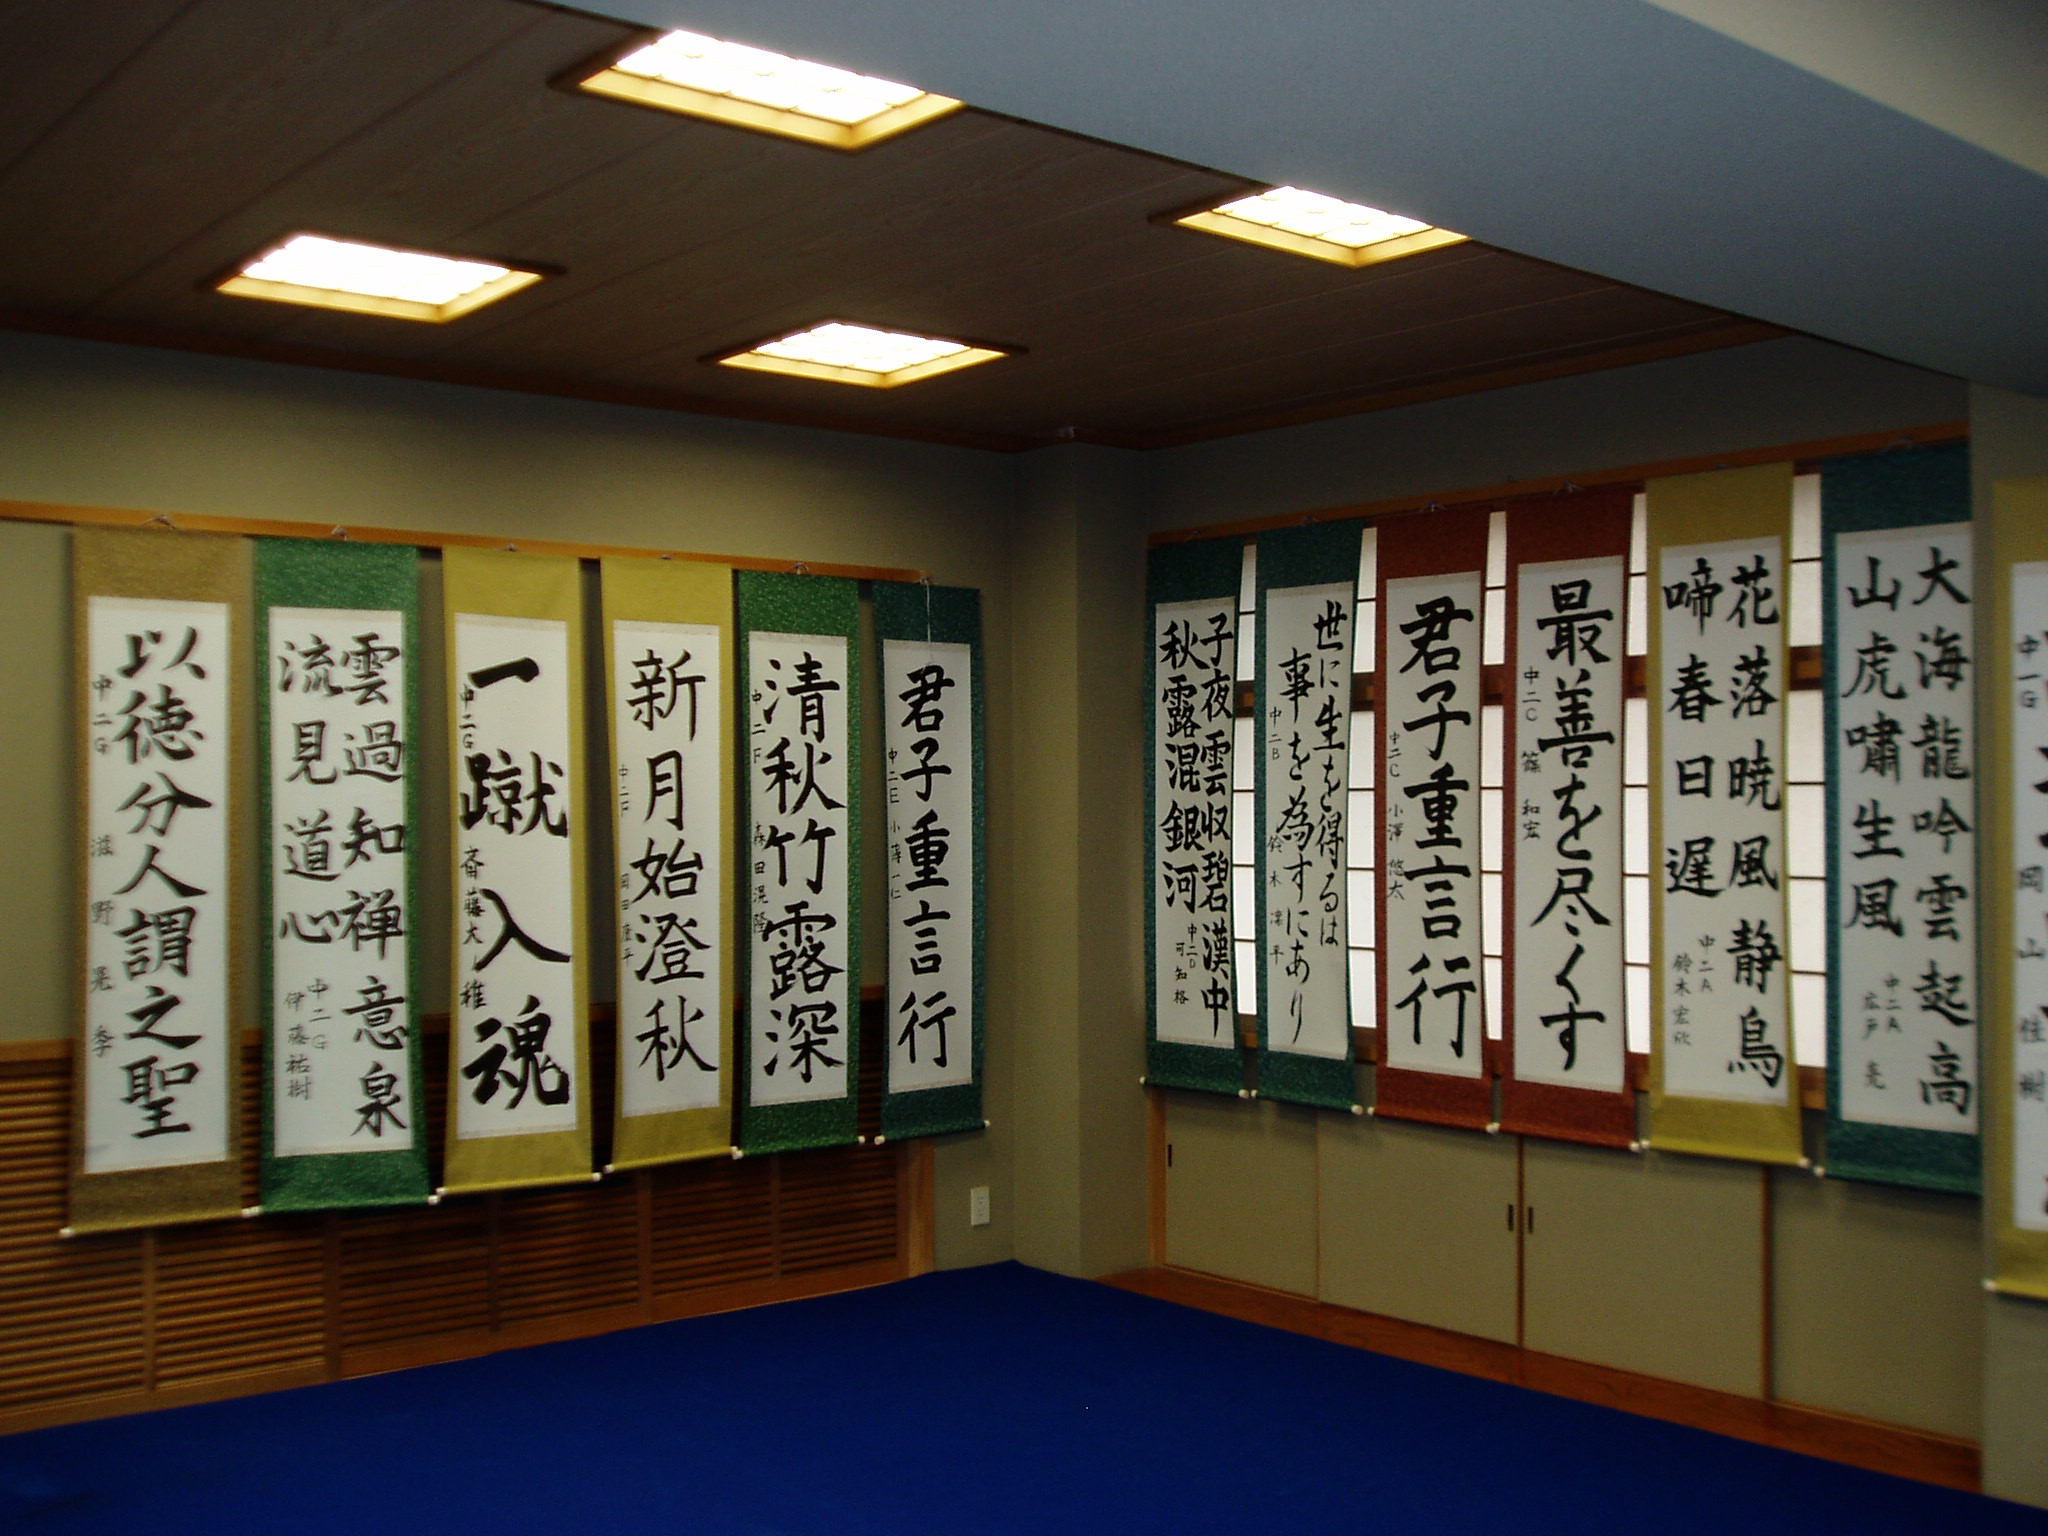 以徳分人謂之聖
中二G 滋野晃季
雲過知禅意泉
流見道心
中二G
伊藤祐樹
一蹴入魂
中二G 斎藤大稚
新月始澄秋
中二F 岡田康平
清秋竹露深
中二F 森田滉隆
君子重言行
中二E
子夜雲収碧漢中
秋露混銀河
中二D
可知格
世に生を得るは
事を為すにあり
中二B 鈴木 平
君子重言行
中二C 小澤 悠太
最善を尽くす
中二C 篠 和宏
花落暁風静鳥
啼春日遅
中二A
鈴木宏欣
大海龍吟雲起高
山虎嘯生風
中二A
広戸 亮
中一G 岡山佳樹